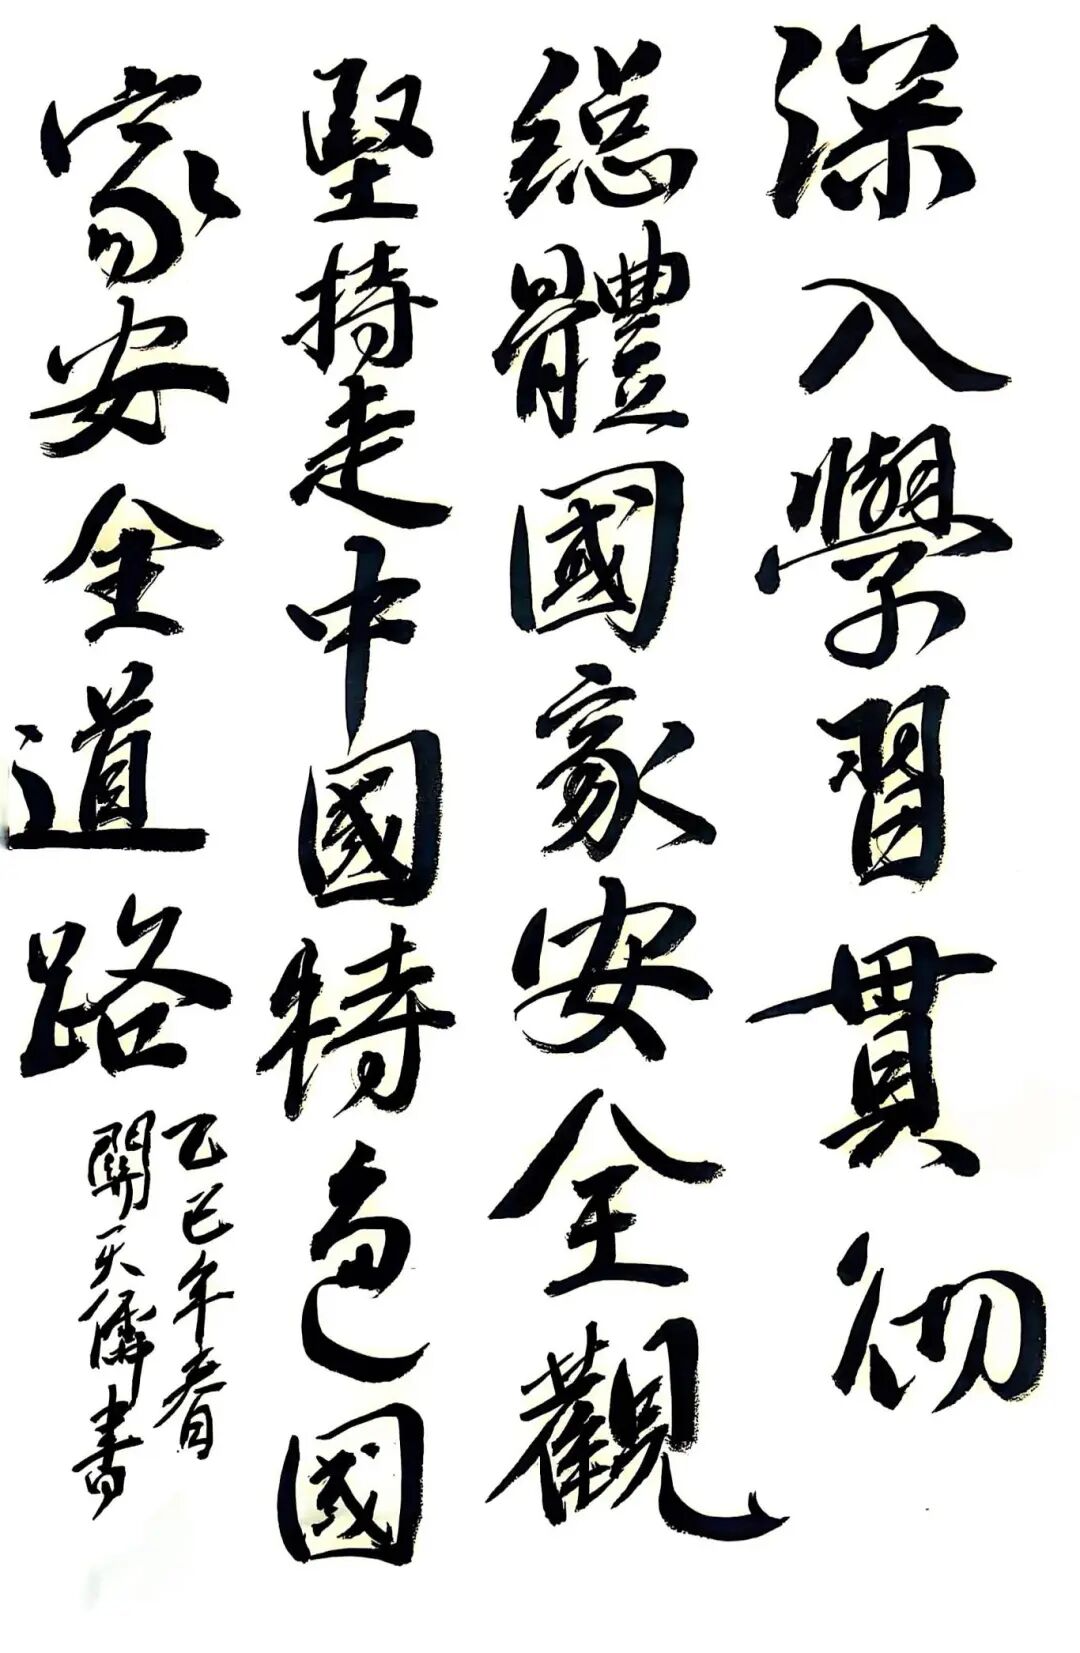 深入學習貫彻
總體國家安全觀
堅持走中國特色國
家安全道路
乙巳年春
天書